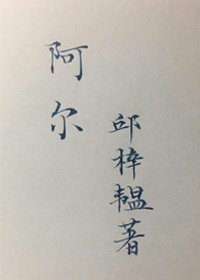 阿尔
邱梓韫著